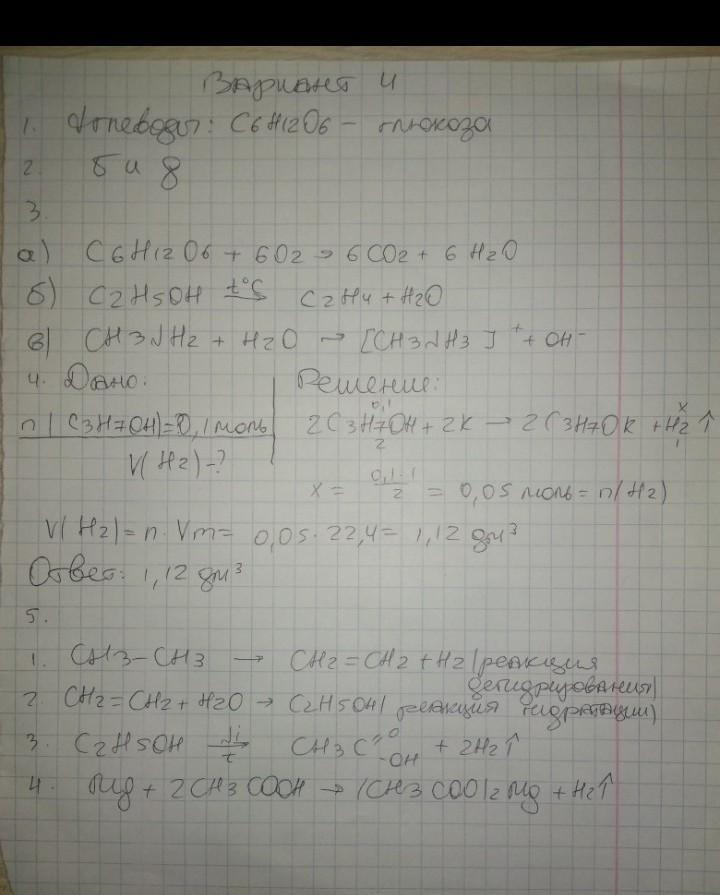 Вариант 4
1. Углеводы: C6H12O6 – глюкоза
2. б и д
3.
а) C6H12O6 + 6O2 → 6CO2 + 6 H2O
б) C2H5OH t°C → C2H4 + H2O
в) CH3NH2 + H2O → [CH3NH3]⁺ + OH⁻
4. Дано: Решение:
n(C3H7OH)=0,1 моль
V(H2)-?
0,1 x
2C3H7OH + 2K → 2C3H7OK + H2↑
2 1
x = 0,1·1/2 = 0,05 моль = n(H2)
V(H2) = n·Vm = 0,05·22,4 = 1,12 дм³
Ответ: 1,12 дм³
5.
1. CH3–CH3 → CH2=CH2 + H2 (реакция
дегидрирования)
2. CH2=CH2 + H2O → C2H5OH (реакция гидратации)
3. C2H5OH Ni → t CH3C=O -OH + 2H2↑
4. Mg + 2CH3COOH → (CH3COO)2Mg + H2↑